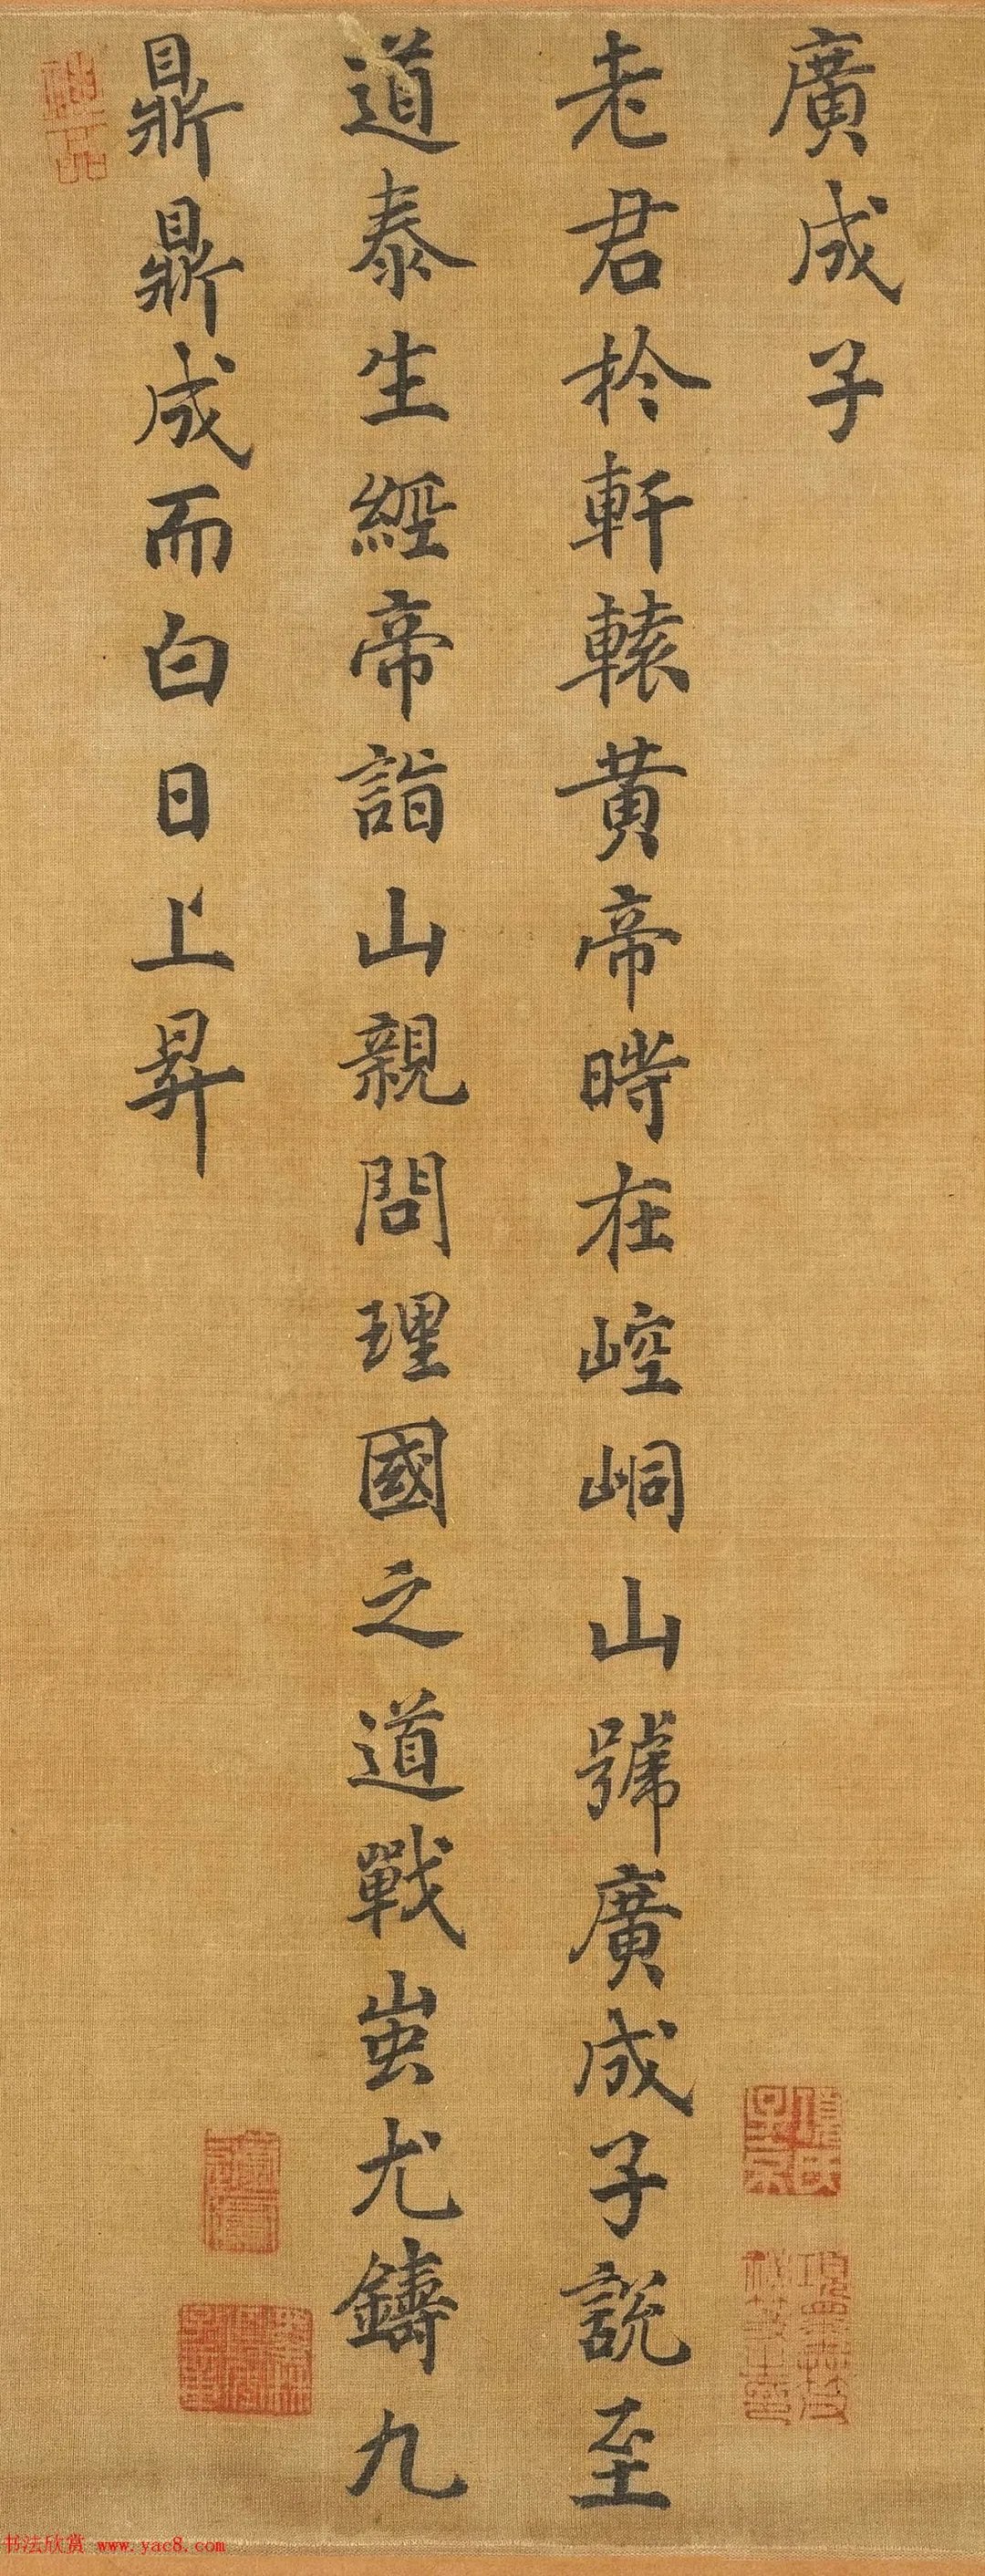 廣成子
老君於軒轅黃帝時在崆峒山號廣成子說至
道泰生經帝詣山親問理國之道戰蚩尤鑄九
鼎鼎成而白日上昇
书法欣赏 www.yac8.com